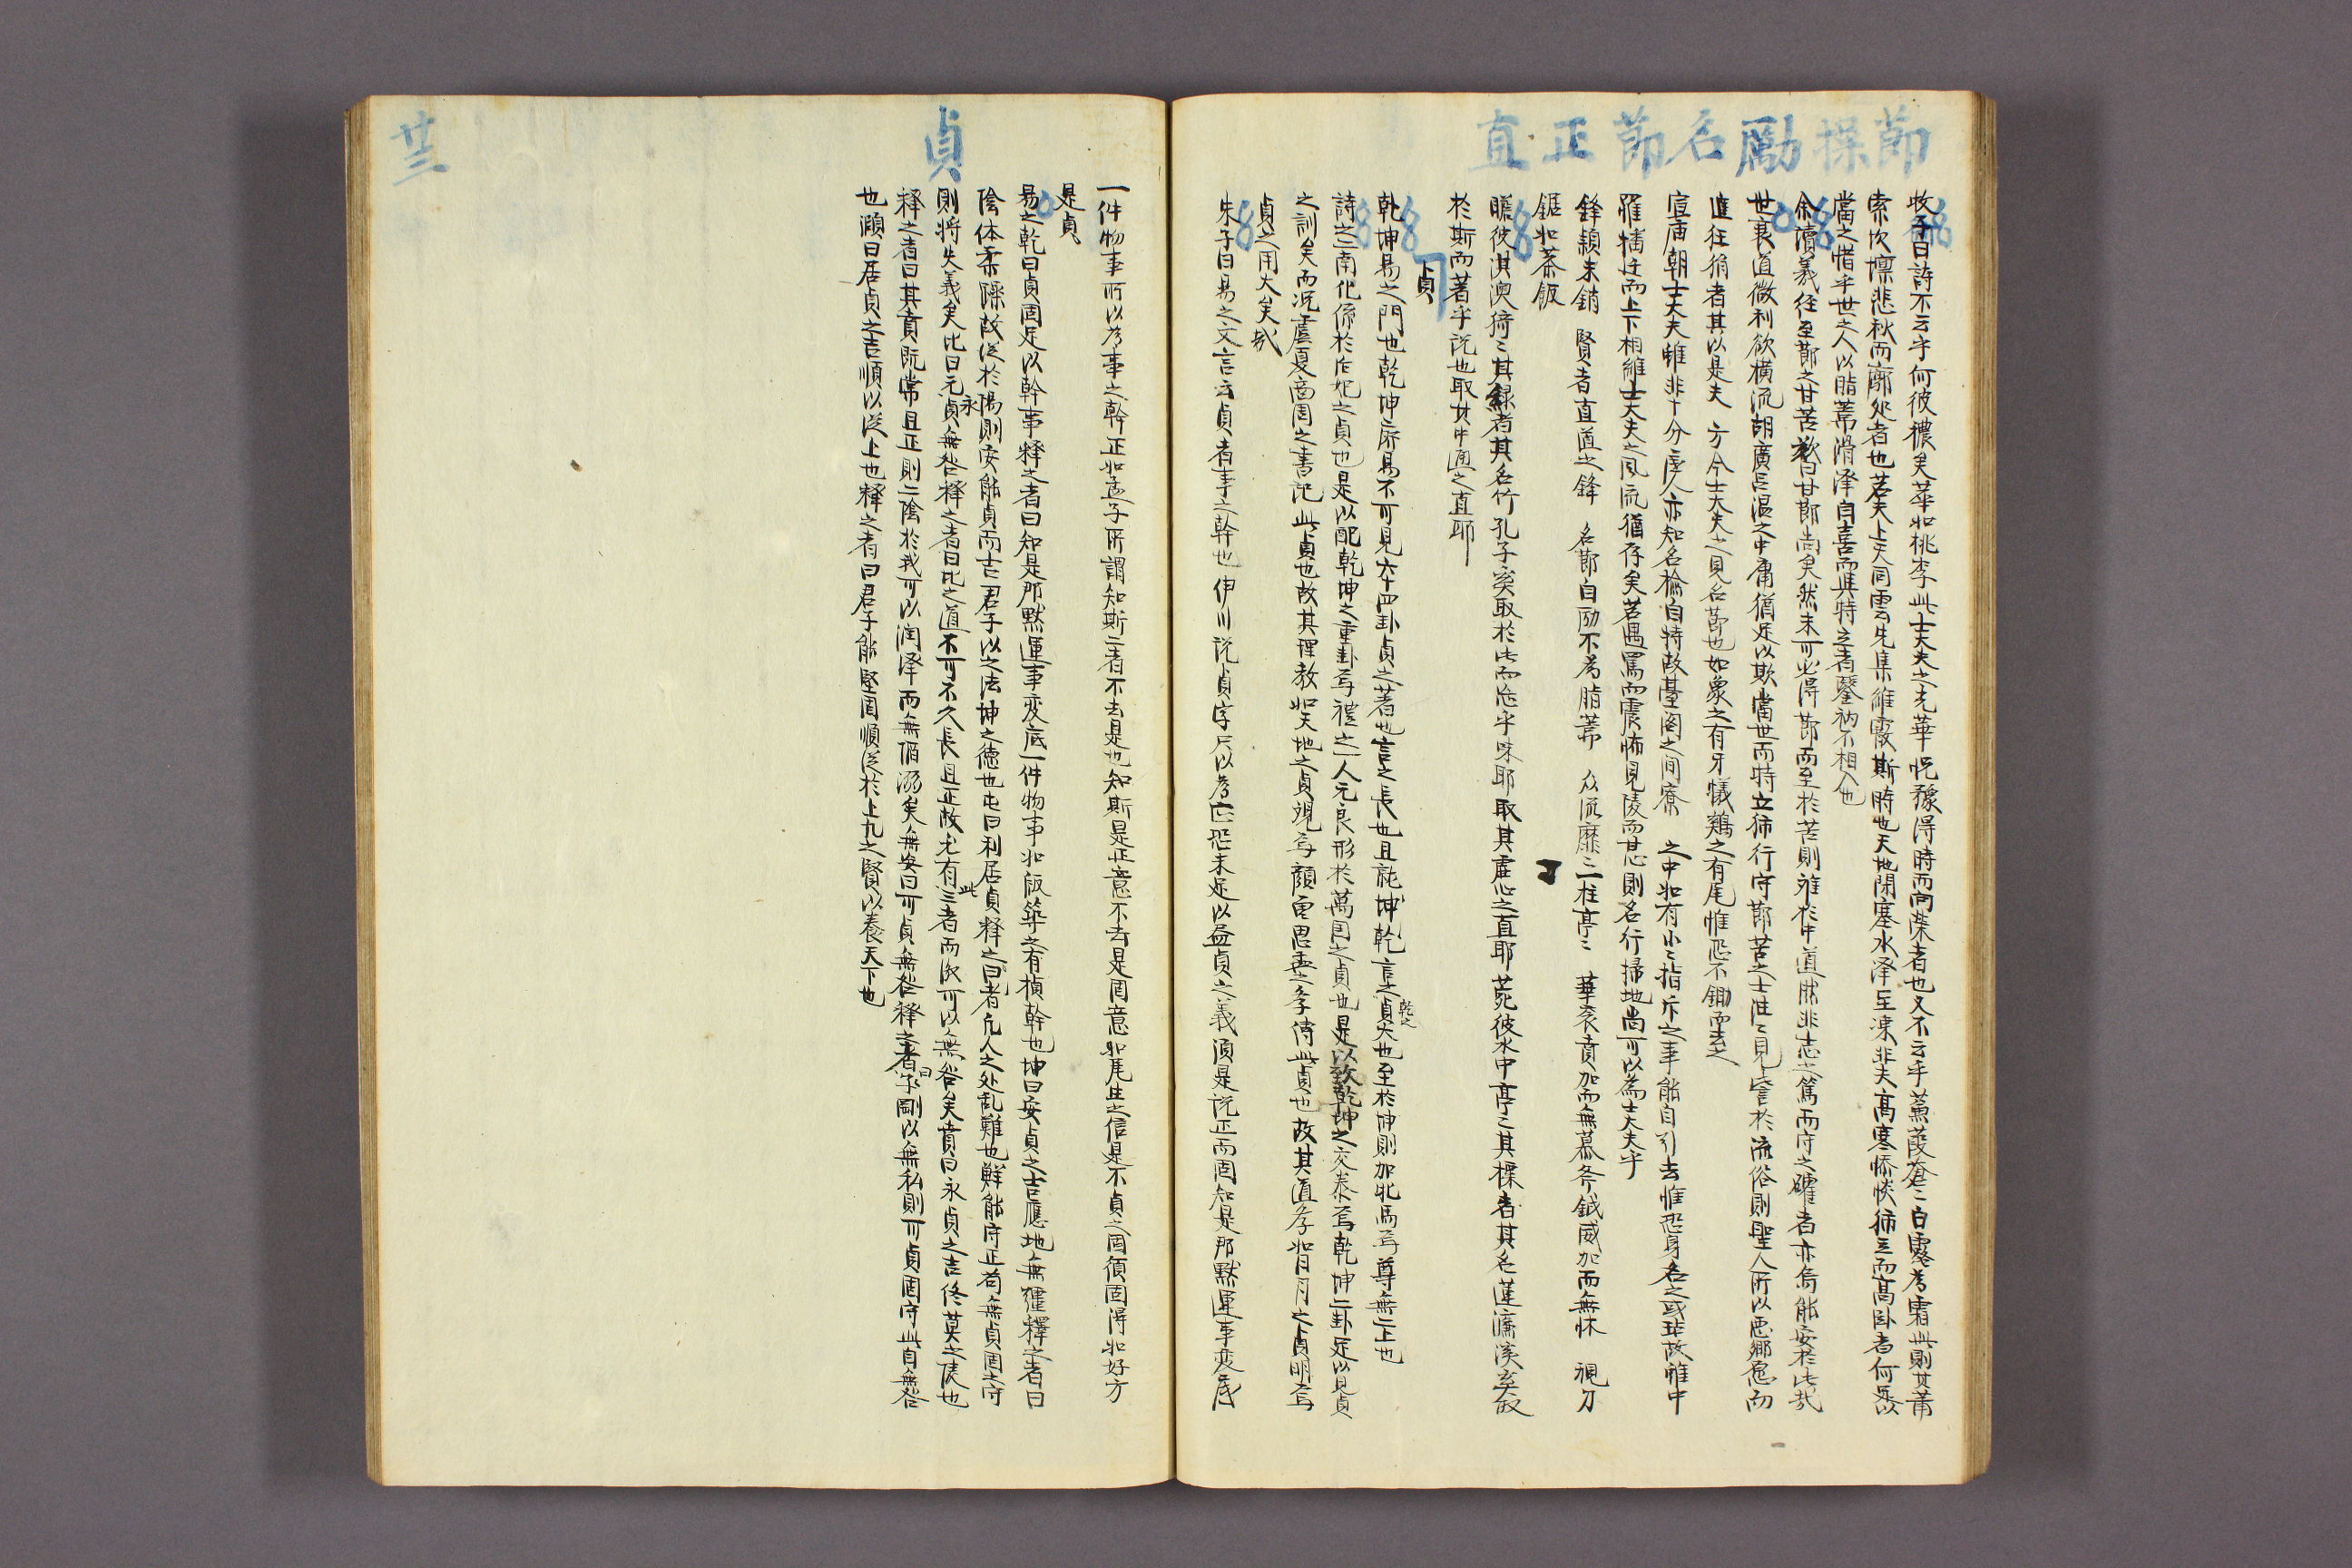 節操 勵名節 正直
牧子曰詩不云乎何彼穠矣華如桃李此士大夫之光華悅豫得時而向榮者也又不云乎蒹葭蒼〻白露為霜此則其蕭
索坎凛悲秋而廓処者也若夫上天同雲先集維霰斯時也天地閉塞水泽呈凍非夫高寒慘淡獨立而高卧者何足以
當之惜乎世之人以脂葦滑泽自喜而與特之者鑿枘不相入也
余讀義往至節之甘苦歎曰甘節尚矣然未可必得節而至於苦則雖於中道然非志之篤而守之確者亦烏能安於此哉
世衰道微利欲橫流胡廣長温之中庸猶足以欺當世而特立獨行守節苦之士往〻見訾於流俗則聖人所以思鄉愿而
進狂狷者其以是夫 方今士大夫之見名節也如象之有牙犧鷄之有尾惟恐不鋤而去之
宣庙朝士大夫雖非十分底人亦知名檢自特故臺阁之间寮 之中如有小〻指斥之事能自引去惟恐身名之或玷故雖中
罹播迁而上下相維士大夫之风流猶存矣若遇罵而震怖見陵而甚則名行掃地尚可以為士大夫乎
鋒頴未銷 賢者直道之鋒 名節自励不為脂葦 众流靡〻一柱亭〻 華衮賁加而無慕斧鉞威加而無怵 視刀
鋸如茶飯
瞻彼淇澳猗〻其綠者其名竹孔子奚取於此而忘乎味耶取其虛心之直耶菀彼水中亭〻其標者其名蓮濂溪奚取
於斯而著乎說也取其中通之直耶
貞
乾坤易之門也乾坤廃易不可見六十四卦貞之著也言之長也且說坤乾言之乾之貞大也至於坤則加牝馬焉尊無二上也
詩之二南化係於后妃之貞也是以配乾坤之重卦焉禮之一人元良形於萬国之貞也是以致乾坤之交泰焉乾坤二卦足以見貞
之訓矣而况虞夏商周之書記此貞也故其理教如天地之貞觀焉顏曾思孟之季傳此貞也故其道季如日月之貞明焉
貞之用大矣哉
朱子曰易之文言云貞者事之幹也伊川說貞字只以為正恐未足以盡貞之義須是說正而固知是那默運事变底
貞
廿三
一件物事所以為事之幹正如孟子所謂知斯二者不去是也知斯是正意不去是固意如尾生之信是不貞之固須固得如好方
是貞
易之乾曰貞固足以幹事释之者曰知是那默運事变底一件物事如版築之有楨幹也坤曰安貞之吉應地無疆釋之者曰
陰体柔躁故従於陽則安能貞而吉君子以之法坤之德也屯曰利居貞释之曰者凡人之处乱難也鮮能守正苟無貞固之守
則将失義矣比曰元永貞無咎释之者曰比之道不可不久長且正故尤有此三者而後可以無咎矣賁曰永貞之吉終莫之陵也
释之者曰其賁既常且正則二陰於我可以润泽而無陷溺矣無妄曰可貞無咎释之者曰剛以無私則可貞固守此自無咎
也颐曰居貞之吉順以従上也释之者曰君子能堅固順従於上九之賢以養天下也